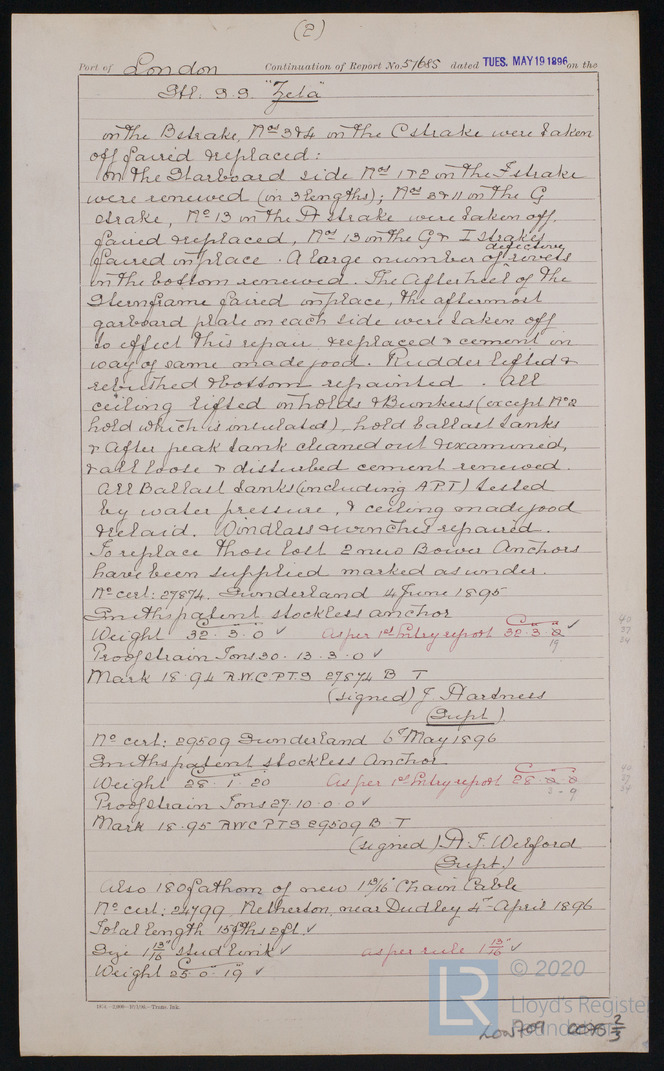 (2)
Port of London Continuation of Report No. 57685 dated TUES. MAY 19 1896 on the
Stl. S.S. "Zeta"
on the B strake, Nos 3 & 4 on the C strake were taken
off faired & replaced:
On the Starboard side Nos 1 & 2 on the F strake
were renewed (in 3 lengths); Nos 3 & 11 on the G
strake, No 13 on the H strake were taken off,
faired & replaced, Nos 13 on the G & I strakes
faired in place. A large number of defective rivets
in the bottom renewed. The After heel of the
Sternframe faired in place, the aftermost
garboard plate on each side were taken off
to effect this repair & replaced & cement in
way of same made good. Rudder lifted &
rebushed & bottom repainted. All
ceiling lifted in holds & Bunkers (except No 2
hold which is insulated), hold ballast tanks
& After peak tank cleaned out & examined,
& all loose & disturbed cement renewed.
All Ballast tanks (including A.P.T) tested
by water pressure, & ceiling made good
& relaid. Windlass & winches repaired.
To replace those lost 2 new Bower Anchors
have been supplied marked as under.
No cert: 27874. Sunderland 4 June 1895
Smiths patent stockless anchor
Weight 32 . 3 . 0 ✓ As per 1st Entry report 32 . 3 . 0 ✓
19
Proof strain Tons 30 . 13 . 3 . 0 ✓
Mark 18.94 RWC PTS 27874 B T
(signed) J Hartness
(Supt)
No cert: 29509 Sunderland 6th May 1896
Smiths patent stockless Anchor
Weight 28 . 1 . 20 As per 1st Entry report 28 . 2 . 0
Proof strain Tons 27 . 10 . 0 . 0 ✓
Mark 18.95 RWC PTS 29509 B T
(signed) H. J. Welford
(Supt)
Also 180 fathom of new 1 13/16" Chain Cable
No cert: 24799 Netherton, near Dudley 4th April 1896
Total length 15 fths 2 ft. ✓
Size 1 13/16" Stud link ✓ as per rule 1 13/16" ✓
Weight 25 . 0 . 19 ✓
© 2020
LR
Lloyd's Register
Foundation
LON709 0095 2/3